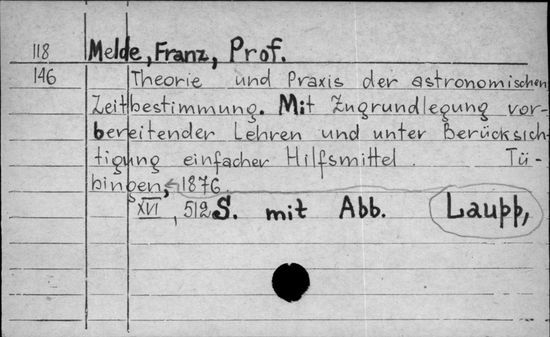 118 Melde, Franz, Prof.
146 Theorie und Praxis der astronomischen
Zeitbestimmung. Mit Zugrundlegung vor-
bereitender Lehren und unter Berücksich-
tigung einfacher Hilfsmittel. Tü-
bingen, 1876.
XVI, 512 S. mit Abb. Laupp,